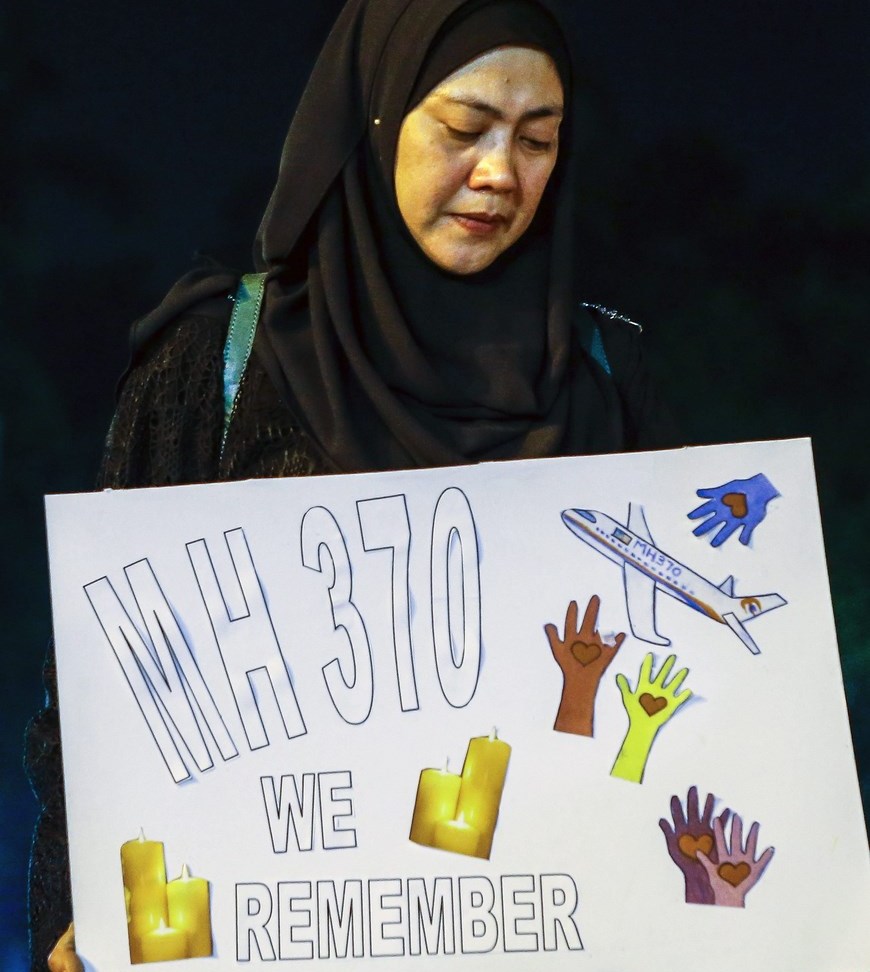 MH 370
MH370
WE
REMEMBER